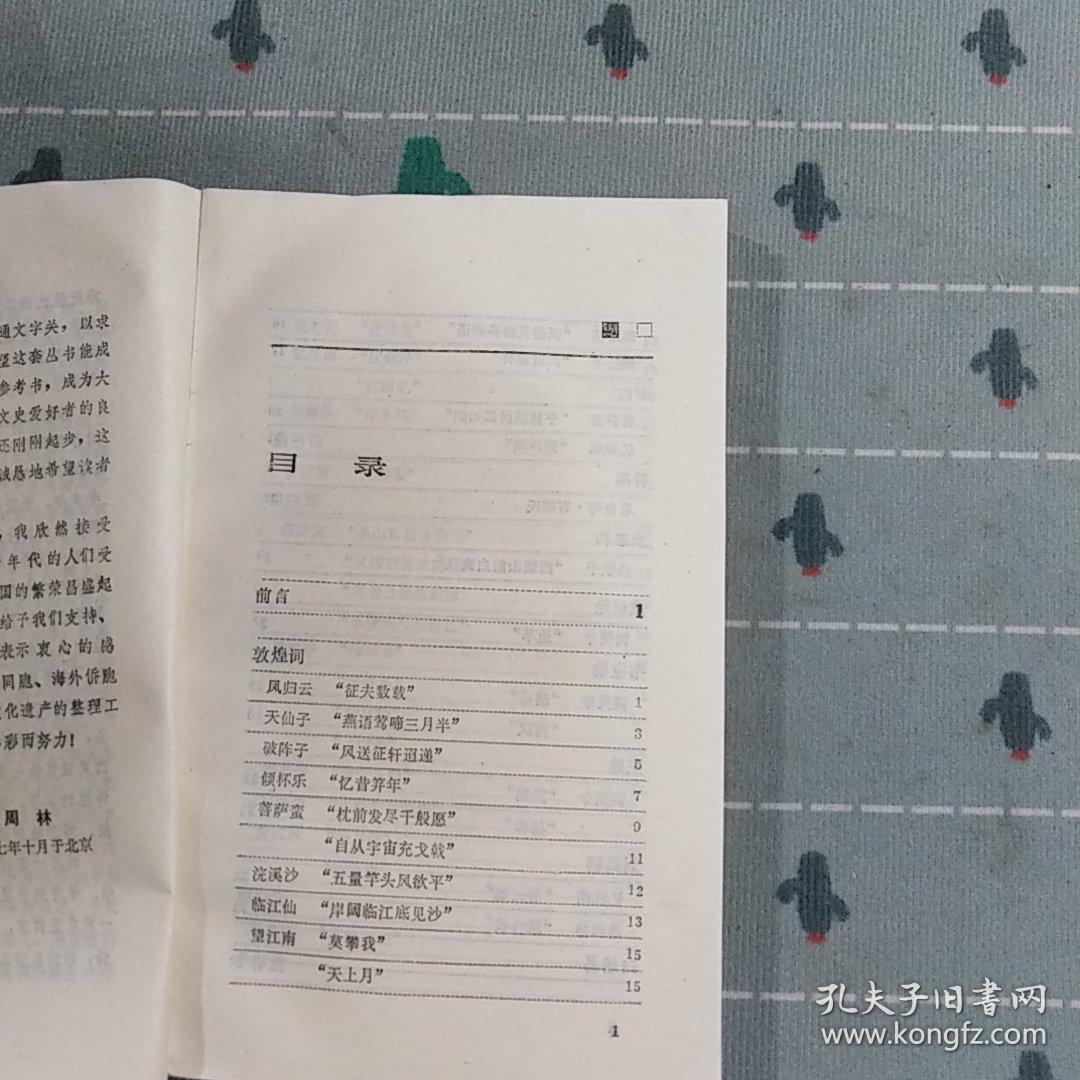 通文字关，以求
望这套丛书能成
参考书，成为大
文史爱好者的良
还刚刚起步，这
诚恳地希望读者
，我欣然接受
年代的人们受
国的繁荣昌盛起
给予我们支持、
表示衷心的感
同胞、海外侨胞
文化遗产的整理工
彩而努力！
周 林
七年十月于北京
目 录
前言 1
敦煌词
风归云 “征夫数载” 1
天仙子 “燕语莺啼三月半” 3
破阵子 “风送征轩迢递” 5
倾怀乐 “忆昔笄年” 7
菩萨蛮 “枕前发尽千般愿” 9
“自从宇宙充戈戟” 11
浣溪沙 “五量竿头风欲平” 12
临江仙 “岸阔临江底见沙” 13
望江南 “莫攀我” 15
“天上月” 15
1
孔夫子旧书网
www.kongfz.com